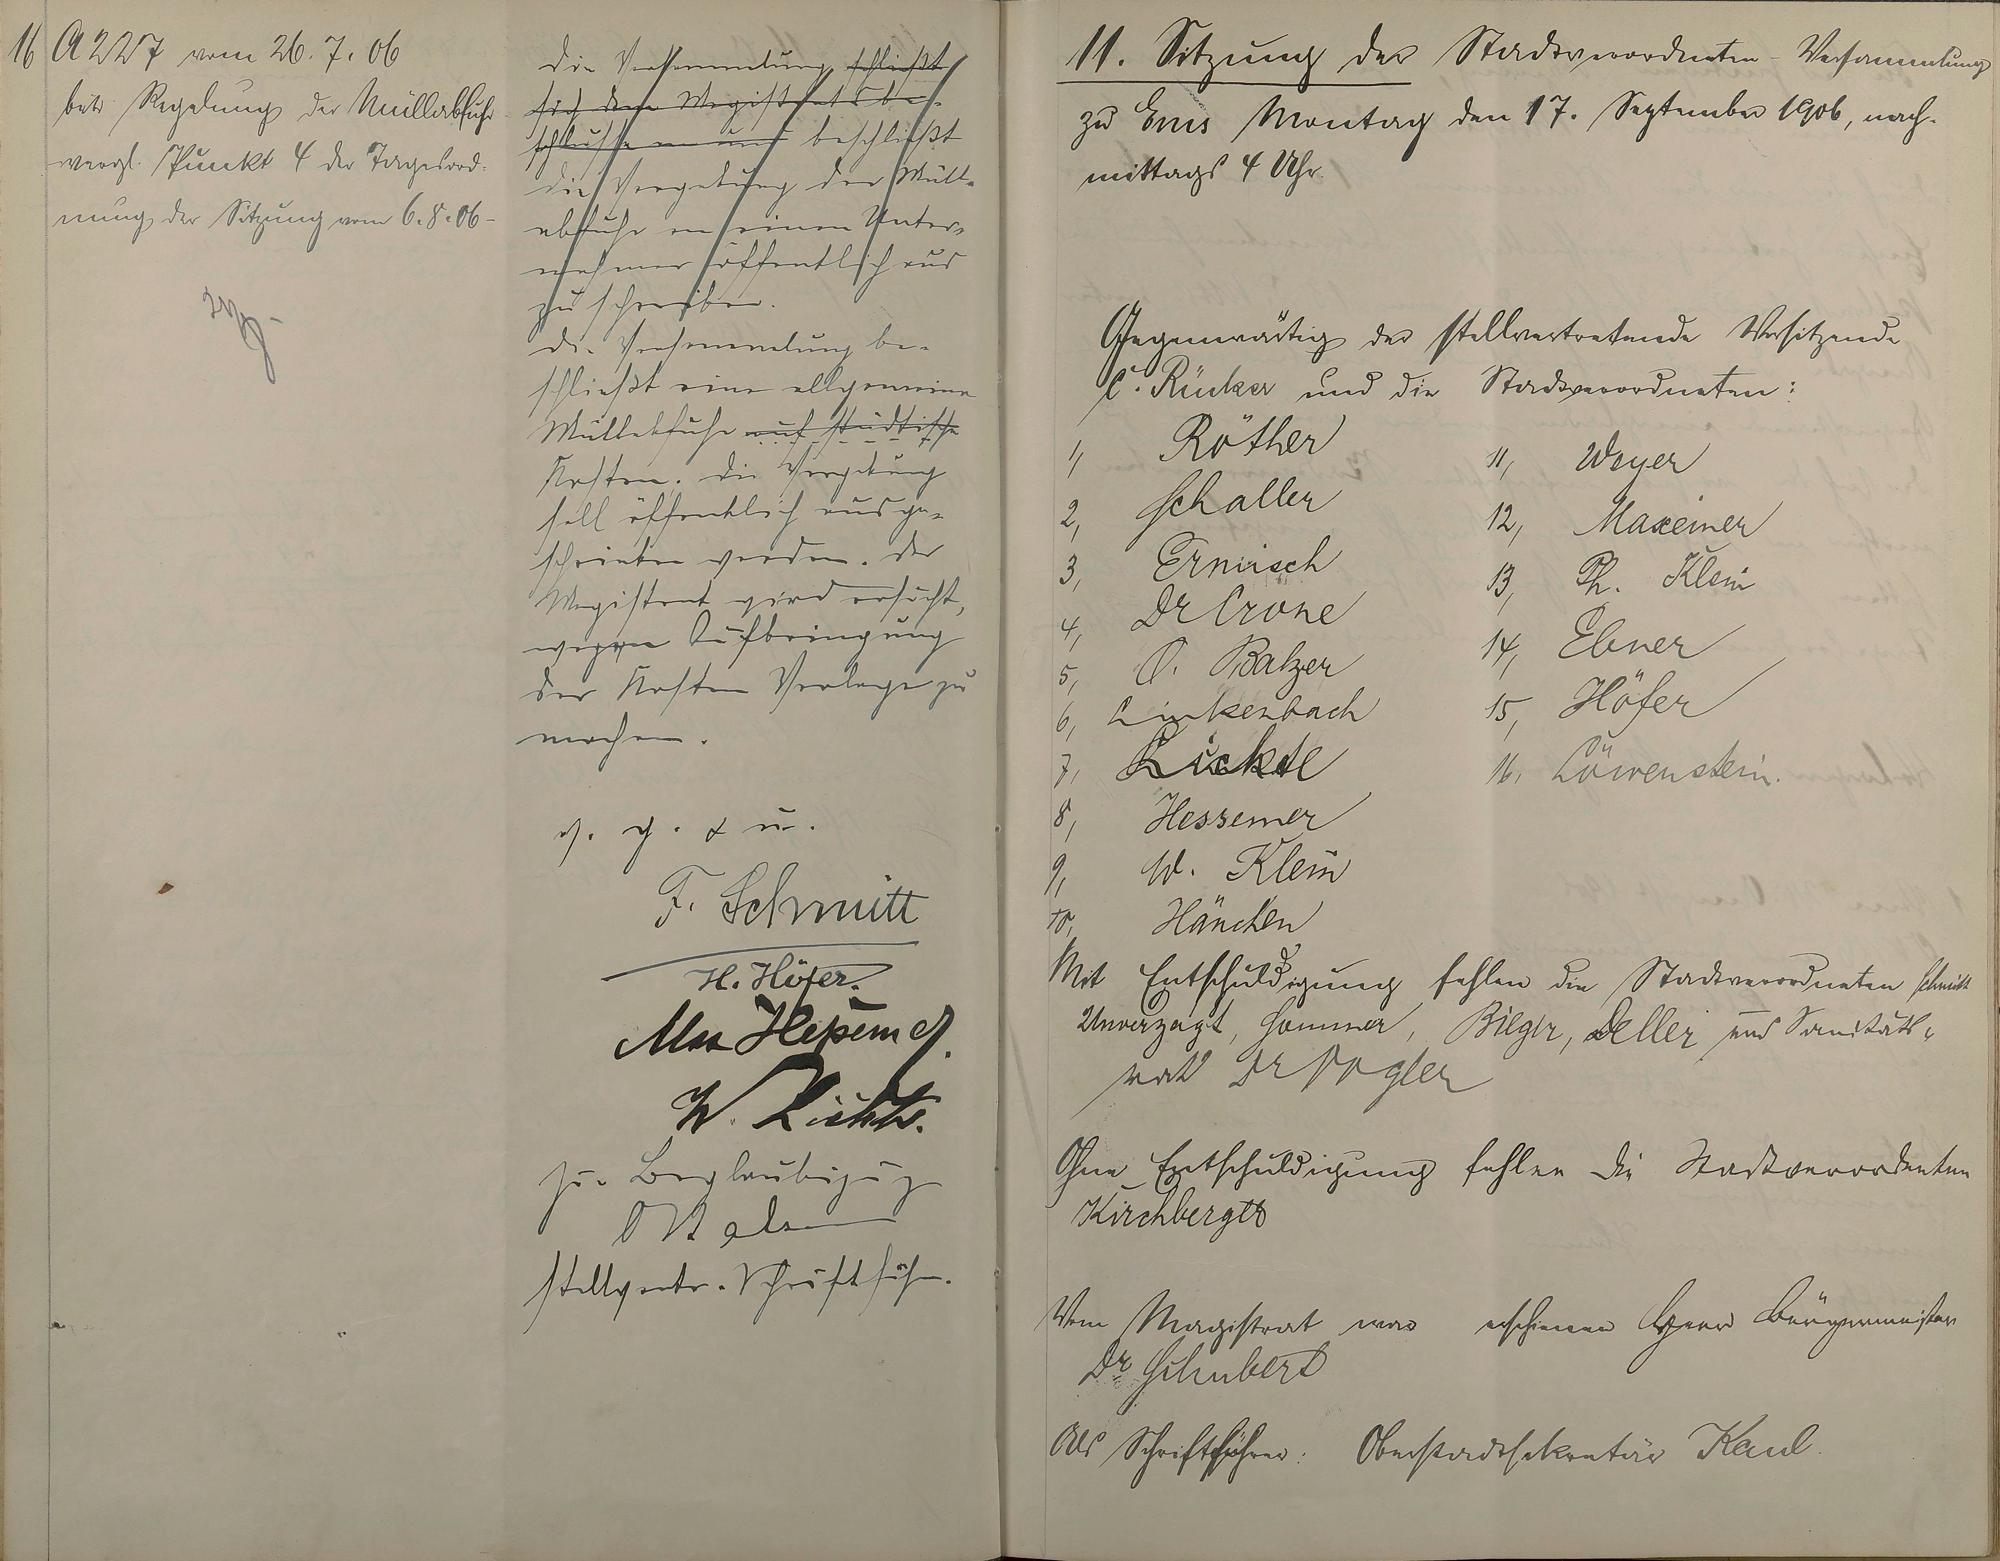 16 A 227 vom 26. 7. 06
betr. Regelung der Müllabfuhr
vergl. Punkt 4 der Tagesord-
nung der Sitzung vom 6.8.06-
Die Versammlung schließt
sich dem Magistratsbe-
schlusse an und beschließt
die Vergebung der Müll-
abfuhr an einen Unter-
nehmer öffentlich aus
zu schreiben.
Die Versammlung be-
schließt eine allgemeine
Müllabfuhr auf städtische
Kosten. Die Vergebung
soll öffentlich ausge-
schrieben werden. Der
Magistrat wird ersucht,
wegen Aufbringung
der Kosten Vorlage zu
machen.
v. g. & u.
F. Schmitt
H. Höfer.
W. Lickte.
Zur Beglaubigung
stellvertr. Schriftführ.
11. Sitzung der Stadtverordneten-Versammlung
zu Ems Montag den 17. September 1906, nach-
mittags 4 Uhr.
Gegenwärtig der stellvertretende Vorsitzende
C. Rücker und die Stadtverordneten:
1, Röther
2, Schaller
3, Ermisch
4, Dr Crone
5, O. Balzer
6, Linkenbach
7, Lickte
8, Hessemer
9, W. Klein
10, Hänchen
11, Weyer
12, Maxeiner
13, Ph. Klein
14, Ebner
15, Höfer
16, Löwenstein.
Mit Entschuldigung fehlen die Stadtverordneten Schmitt
Unverzagt, Sommer, Bilger, Deller und Sanitäts-
rat Dr Vogler
Ohne Entschuldigung fehlen die Stadtverordneten
Kirchberger
Vom Magistrat war erschienen Herr Bürgermeister
Dr Schubert
Als Schriftführer: Oberstadtsekretär Kaul.